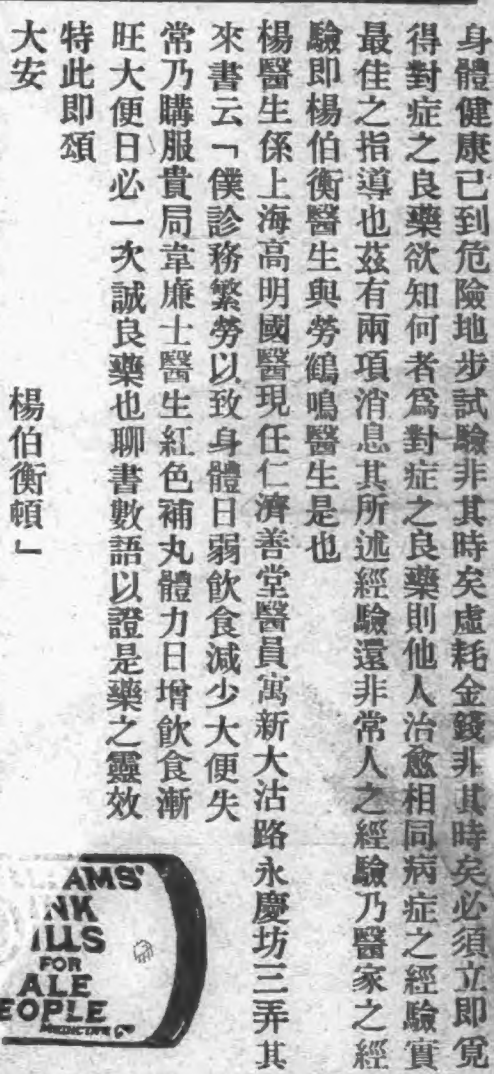 身體健康已到危險地步試驗非其時矣虛耗金錢非其時矣必須立即覓
得對症之良藥欲知何者爲對症之良藥則他人治愈相同病症之經驗實
最佳之指導也茲有兩項消息其所述經驗還非常人之經驗乃醫家之經
驗即楊伯衡醫生與勞鶴鳴醫生是也
楊醫生係上海高明國醫現任仁濟善堂醫員寓新大沽路永慶坊三弄其
來書云「僕診務繁勞以致身體日弱飲食減少大便失
常乃購服貴局韋廉士醫生紅色補丸體力日增飲食漸
旺大便日必一次誠良藥也聊書數語以證是藥之靈效
特此即頌
大安　　　楊伯衡頓」
AMS'
NK
ILLS
FOR
ALE
EOPLE